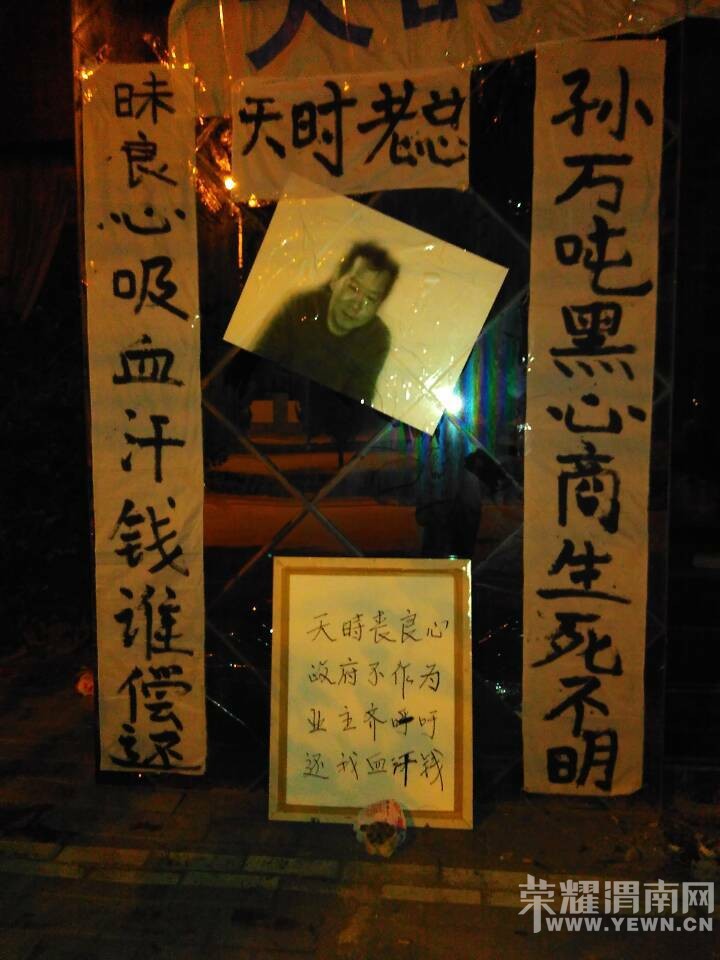 天时老总
孙万吨黑心商生死不明
昧良心吸血汗钱谁偿还
天時丧良心
政府不作为
业主齐呼吁
还我血汗钱
荣耀渭南网
WWW.YEWN.CN